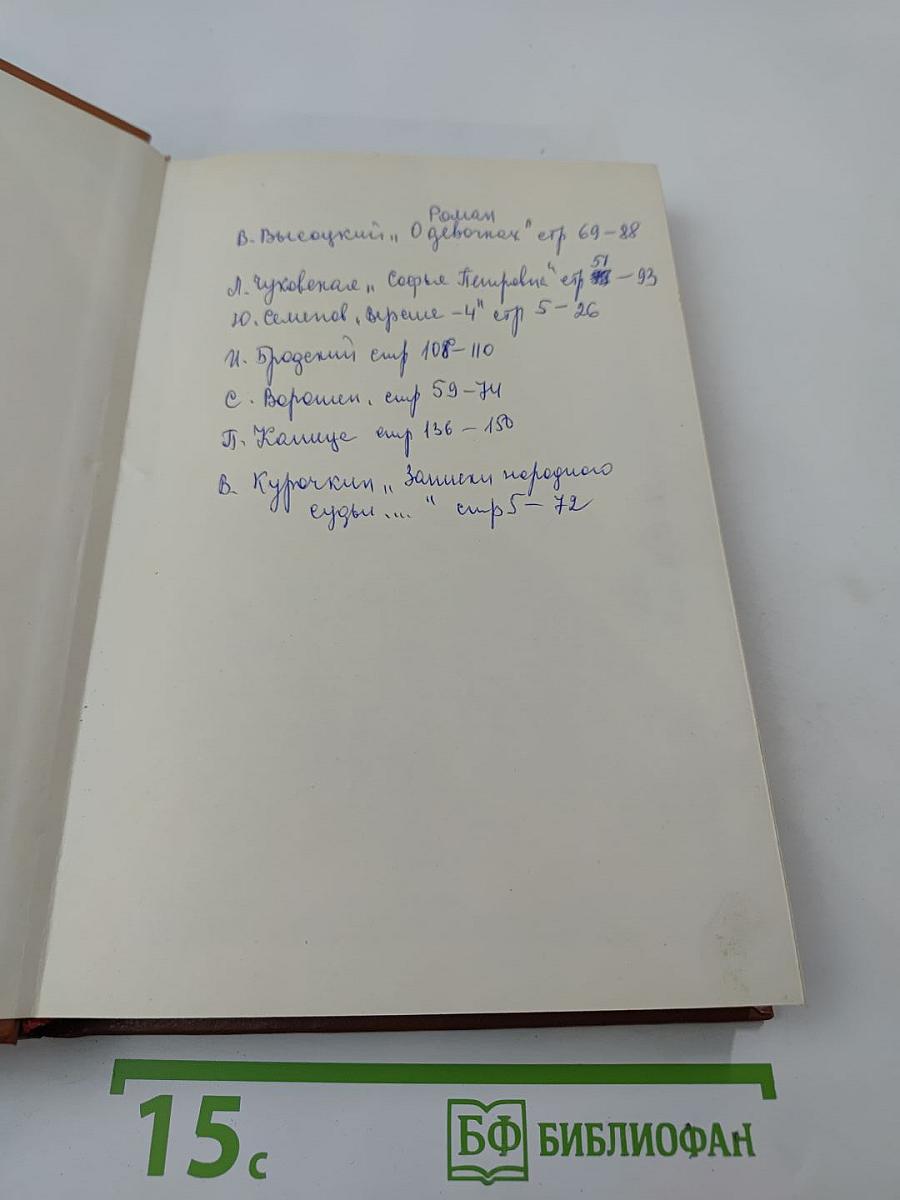 Роман
В. Высоцкий „О девочках" стр 69–88
51
Л. Чуковская „Софья Петровна" стр – 93
Ю. Семенов „Версия –4" стр 5 – 26
И. Бродский стр 108–110
С. Воронин. стр 59–74
П. Капица стр 136 – 150
В. Курочкин „Записки народного
судьи...." стр 5 – 72
15 с
БФ БИБЛИОФАН